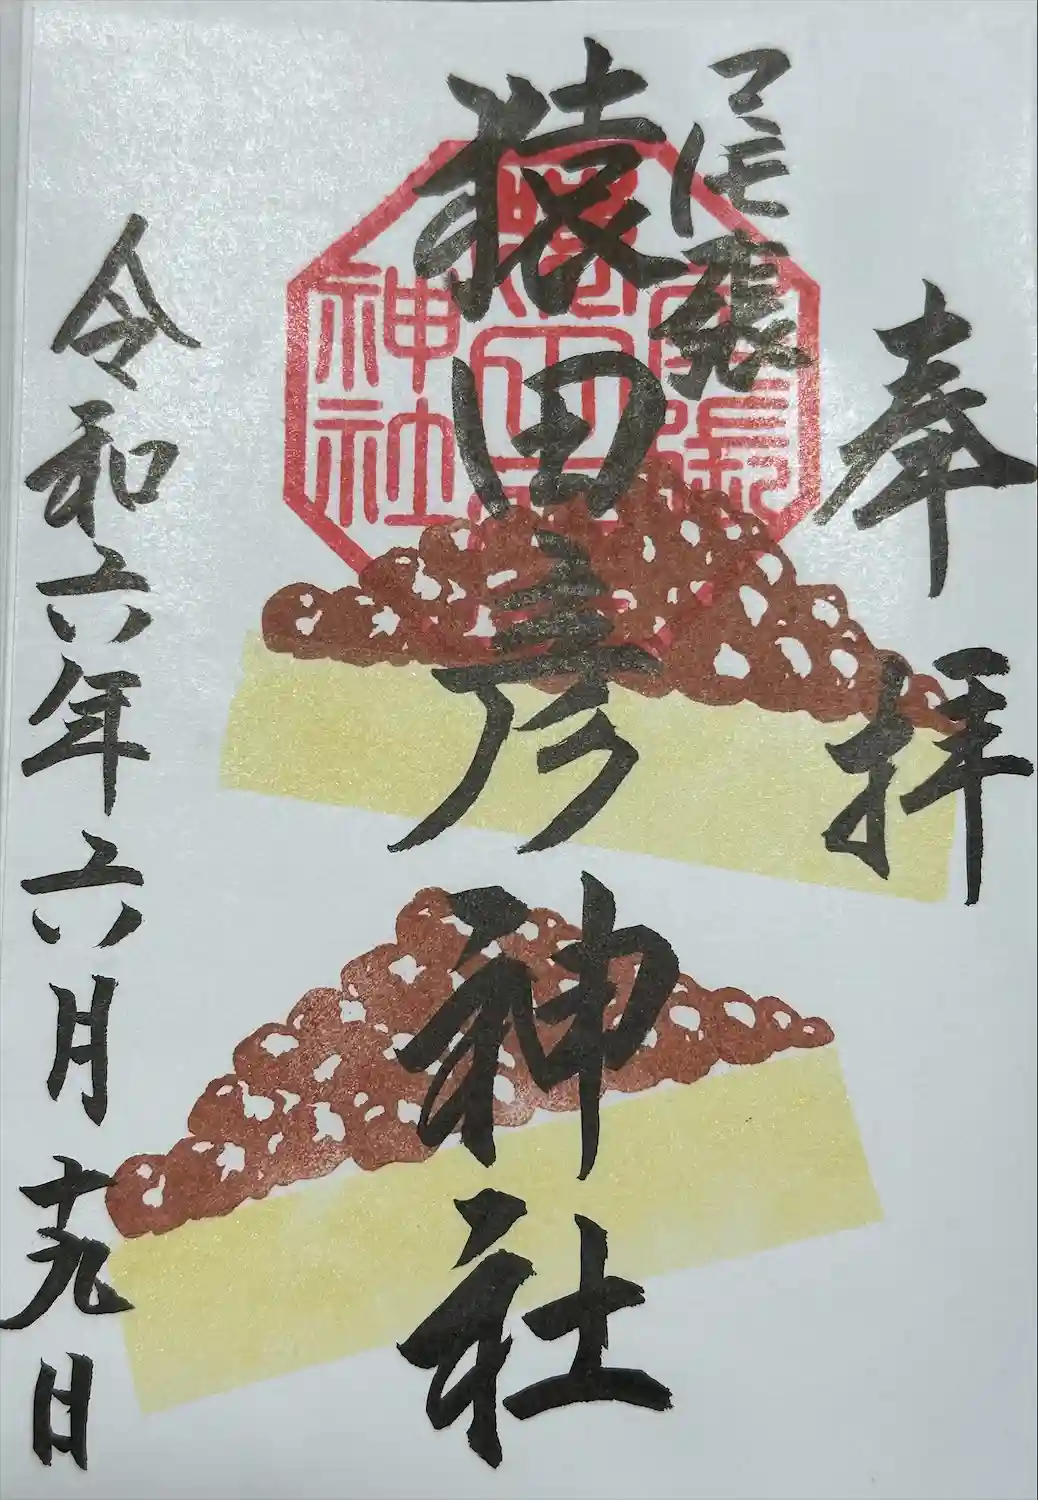 奉拝
尾張
猿田彦神社
尾張
猿田彦
神社
令和六年六月十九日